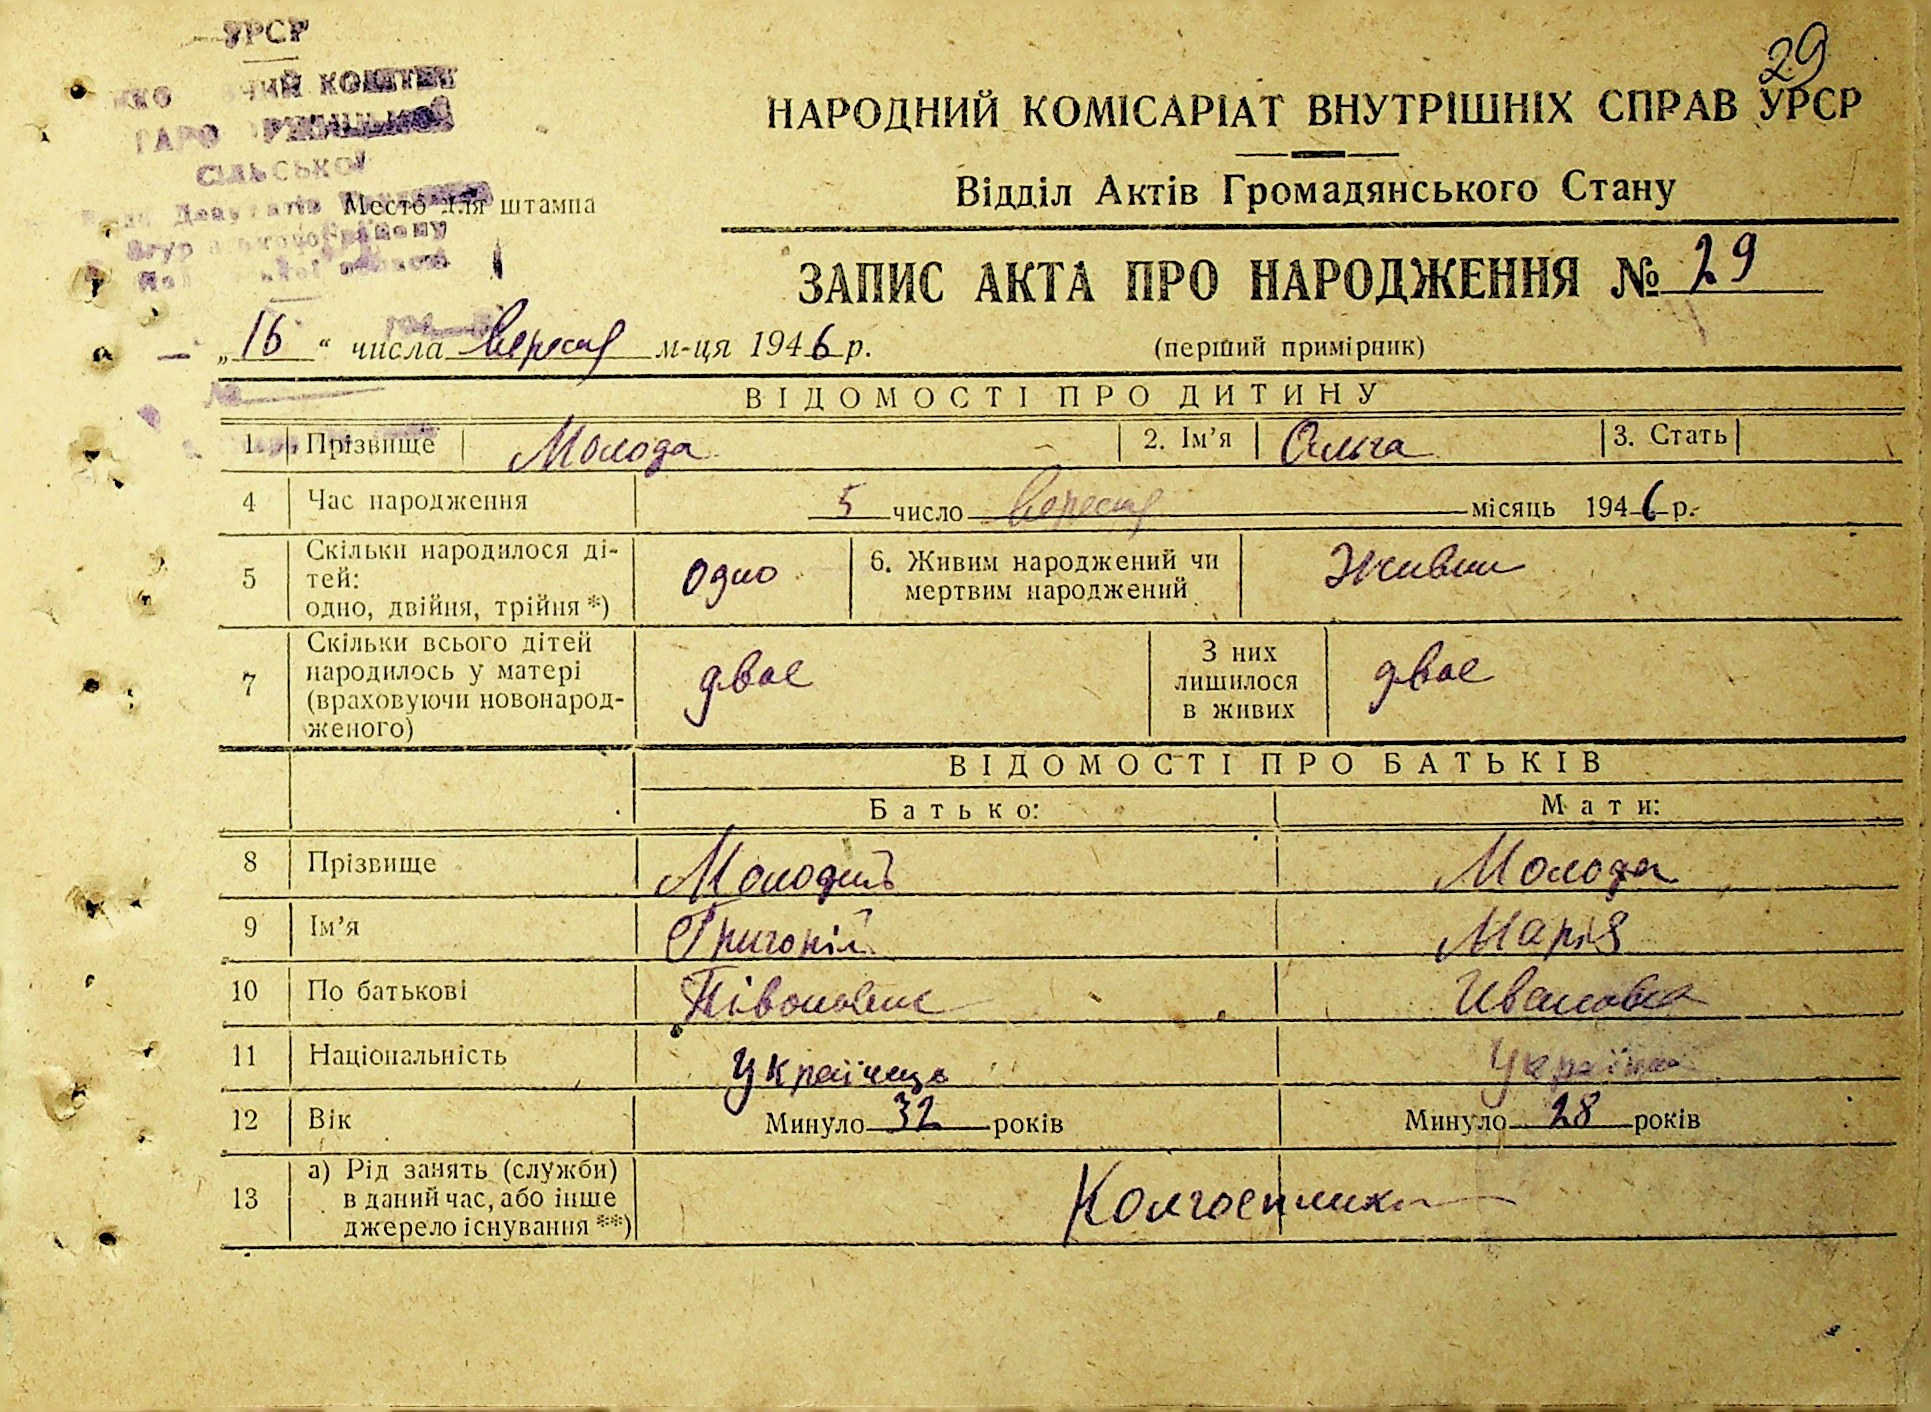 УРСР
29
НАРОДНИЙ КОМІСАРІАТ ВНУТРІШНІХ СПРАВ УРСР
СІЛЬСЬКОЇ
Место для штампа
Відділ Актів Громадянського Стану
ЗАПИС АКТА ПРО НАРОДЖЕННЯ № 29
„16“ числа вересня м-ця 1946 р.
(перший примірник)
ВІДОМОСТІ ПРО ДИТИНУ
1 Прізвище Молода 2. Ім'я Ольга 3. Стать
4 Час народження 5 число вересня місяць 1946 р.
5 Скільки народилося ді-
тей:
одно, двійня, трійня *) одно 6. Живим народжений чи
мертвим народжений Живим
7 Скільки всього дітей
народилось у матері
(враховуючи новонарод-
женого) двоє З них
лишилося
в живих двоє
ВІДОМОСТІ ПРО БАТЬКІВ
Батько: Мати:
8 Прізвище Молодий Молода
9 Ім'я Григорій Марія
10 По батькові Ивановна
11 Національність Українець Українка
12 Вік Минуло 32 років Минуло 28 років
13 а) Рід занять (служби)
в даний час, або інше
джерело існування **)